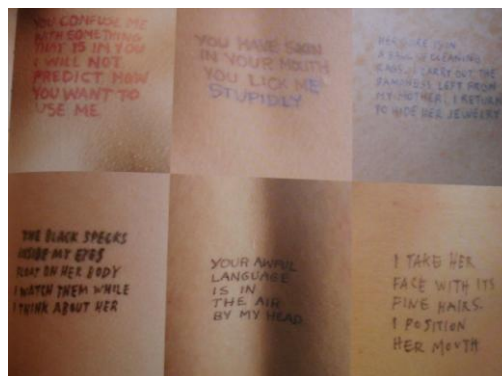 YOU CONFUSE ME
WITH SOMETHING
THAT IS IN YOU
I WILL NOT
PREDICT HOW
YOU WANT TO
USE ME.
YOU HAVE SKIN
IN YOUR MOUTH
YOU LICK ME
STUPIDLY
HER SKIN
A BALL CLEANING
CARRY OUT THE
DAMPNESS LEFT FROM
MY MOTHER. I RETURN
TO HIDE HER JEWELRY
THE BLACK SPECKS
INSIDE MY EYES
FLOAT ON HER BODY
I WATCH THEM WHILE
I THINK ABOUT HER
YOUR AWFUL
LANGUAGE
IS IN
THE AIR
BY MY HEAD
I TAKE HER
FACE WITH ITS
FINE HAIRS.
I POSITION
HER MOUTH